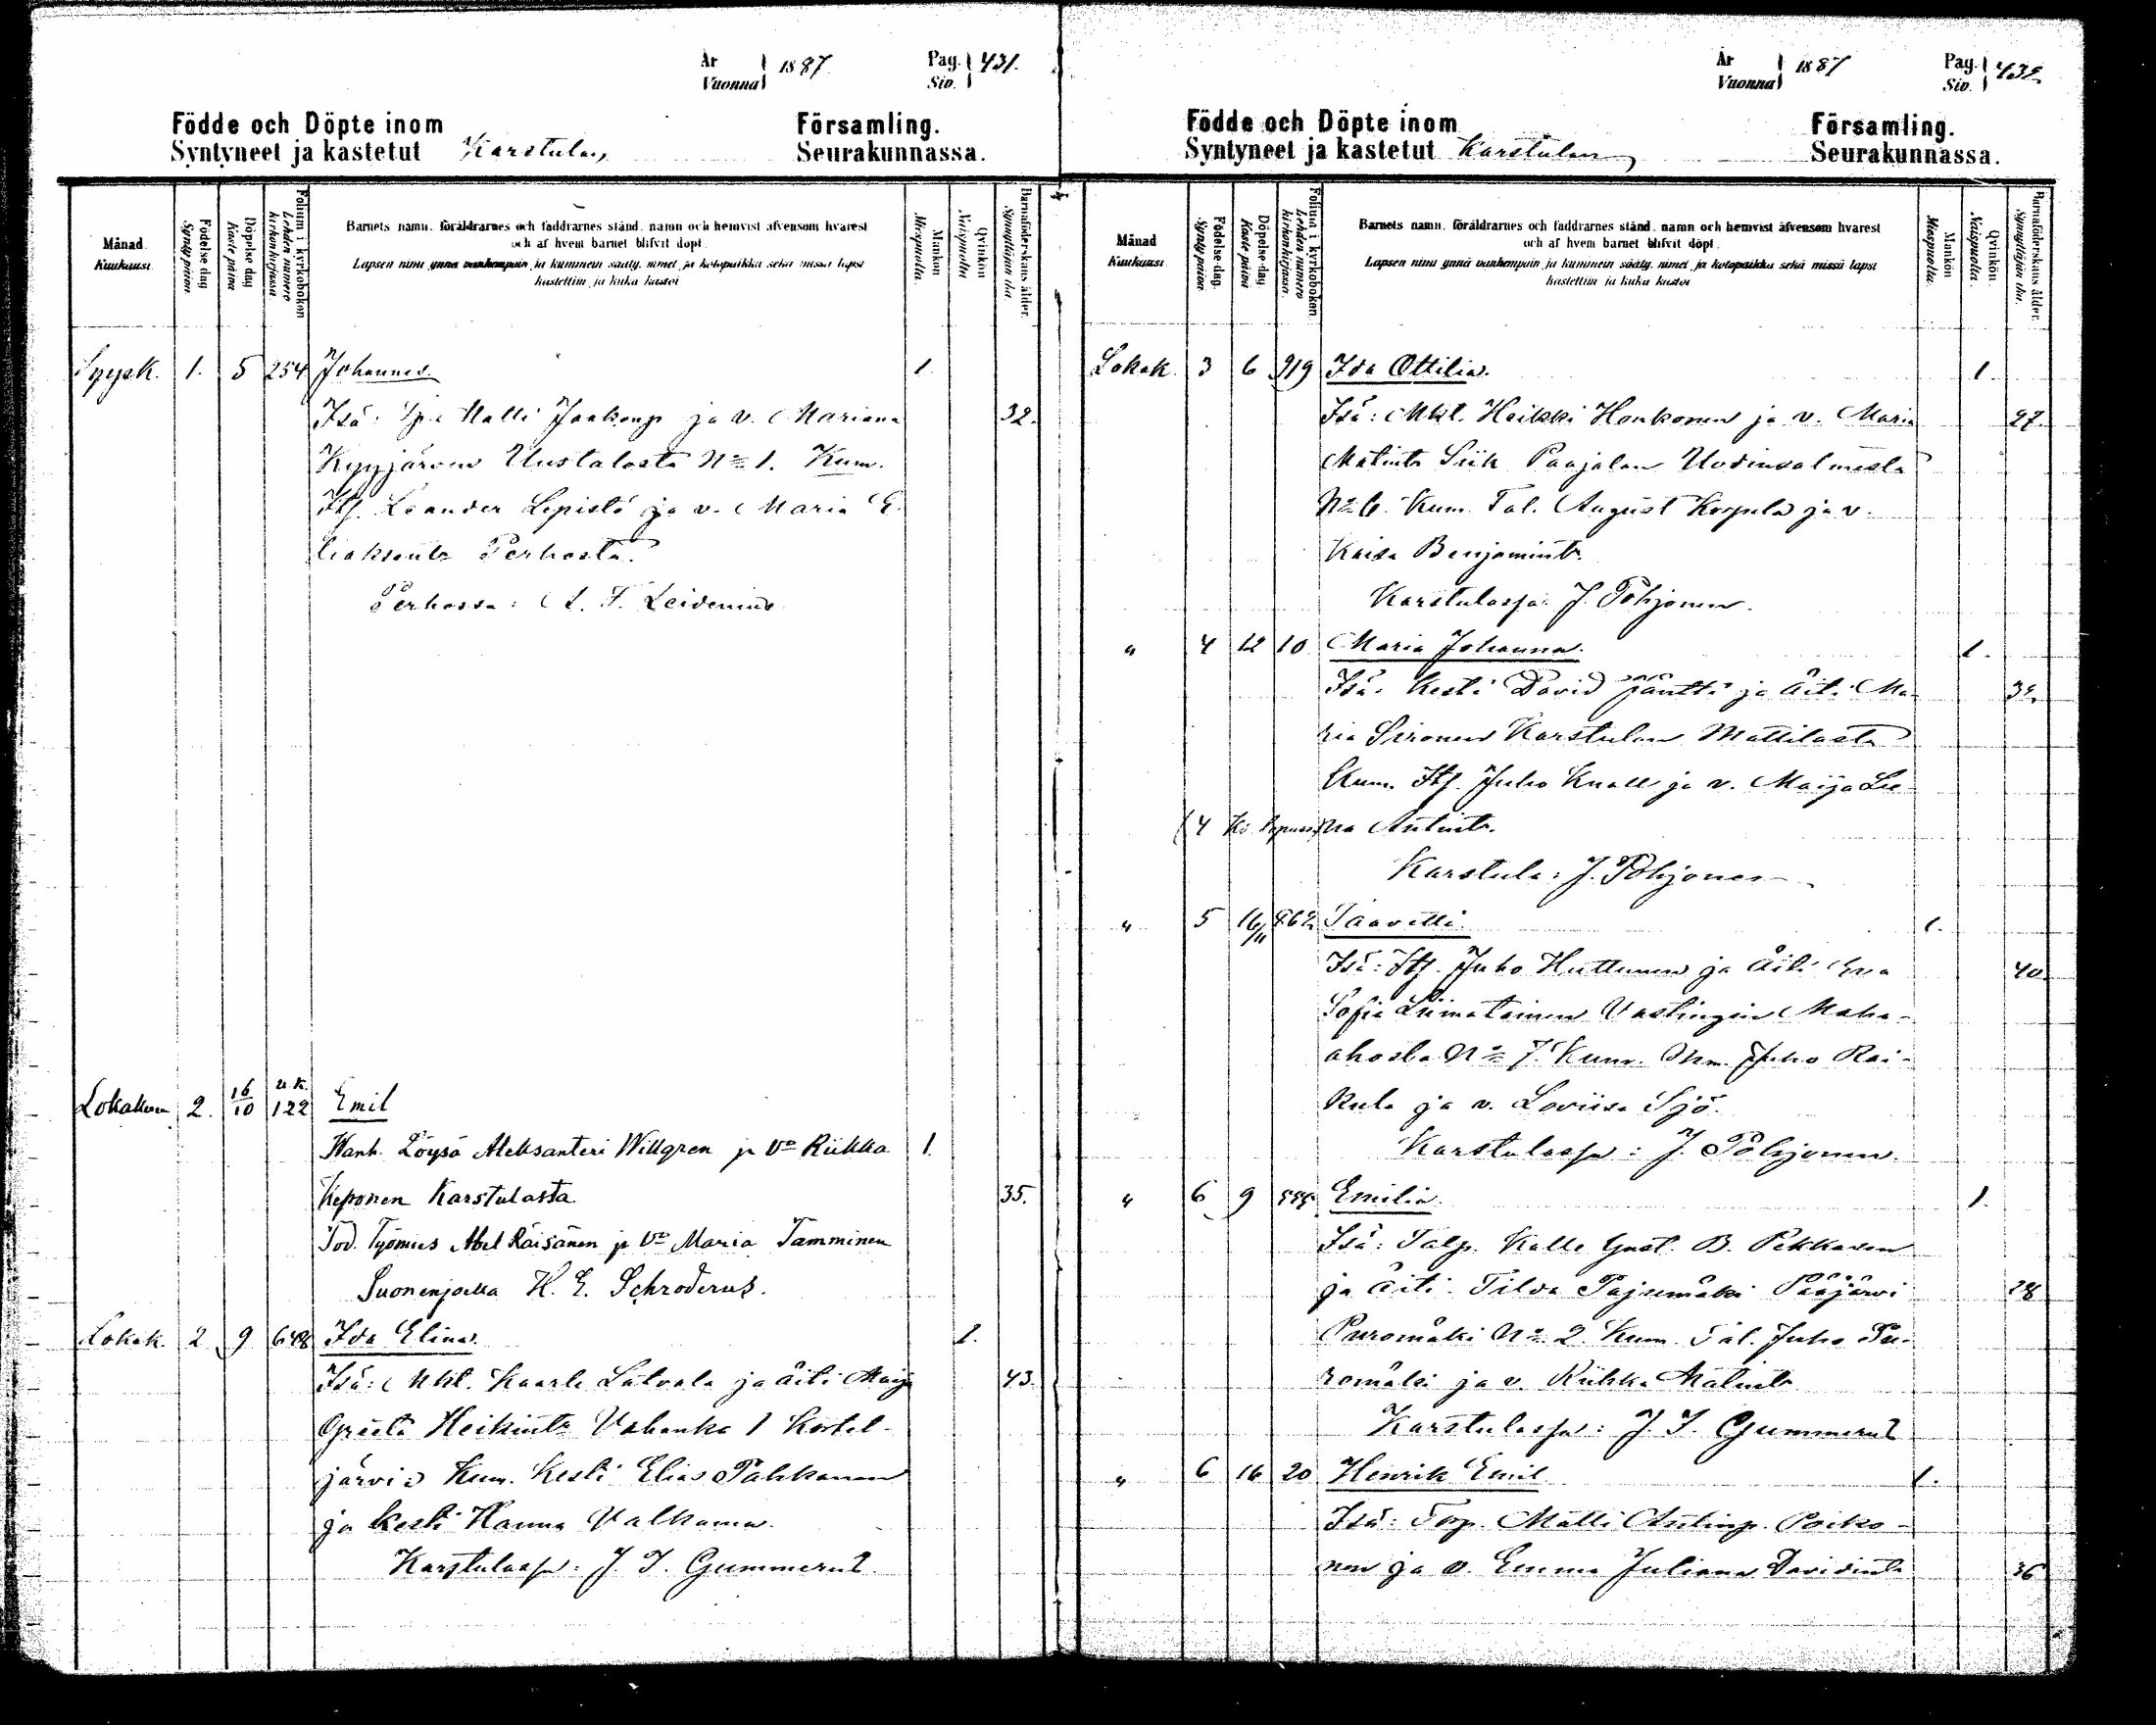 År Vuonna 1887. Pag. Siv. 431.
Födde och Döpte inom Församling.
Syntyneet ja kastetut Karstulan Seurakunnassa.
Månad Kuukausi
Födelse dag Synty päivä
Döpelse dag Kaste päivä
Folium i kyrkoboken Lehden numero kirkonkirjassa
Barnets namn, föräldrarnes och faddrarnes stånd, namn och hemvist äfvensom hvarest
och af hvem barnet blifvit döpt.
Lapsen nimi ynnä vanhempain ja kummein sääty, nimet ja kotopaikka sekä missä lapsi
kastettiin ja kuka kastoi
Mankön Miespuolia.
Qvinkön Naispuolia
Barnaföderskans ålder. Synnyttäjän ikä.
Syysk. 1. 5 254 Johannes 1.
Isä: Matti Jaakonp. ja v. Mariana 32.
Kyyjärven Uustalosta No 1. Kum.
Itj. Leander Lepistö ja v. Maria E.
Perhosta.
Perhossa: A. F. Leidenius
Lokakuu 2. 16/10 u.k. 122 Emil
Wanh. Löysä Aleksanteri Willgren ja Vo Riikka 1.
Keponen Karstulasta 35.
Tod. Työmies Abel Räisänen ja Vo Maria Tamminen
Suonenjoella H. E. Schroderus.
Lokak. 2 9 648 Ida Elina. 1.
Isä: Mkt. Kaarle Latvala ja äiti Maija 43.
Greeta Heikintr Vahanka 1 Koskel-
järvi Kum. Kesti Elias Pahkanen
ja Kesti Hanna Valkama.
Karstulassa: J. I. Gummerus.
År Vuonna 1887 Pag. Siv. 432
Födde och Döpte inom Församling.
Syntyneet ja kastetut Karstulan Seurakunnassa.
Månad Kuukausi
Födelse-dag. Synty päivä
Döpelse-dag. Kaste päivä
Folium i kyrkoboken Lehden numero kirkonkirjassa
Barnets namn, föräldrarnes och faddrarnes stånd, namn och hemvist äfvensom hvarest
och af hvem barnet blifvit döpt.
Lapsen nimi ynnä vanhempain ja kummein sääty, nimet ja kotopaikka sekä missä lapsi
kastettiin ja kuka kastoi
Mankön Miespuolia.
Qvinkön Naispuolia.
Barnaföderskans ålder. Synnyttäjän ikä.
Lokak. 3 6 919 Ida Ottilia. 1.
Isä: Mkt. Heikki Honkonen ja v. Maria 27.
Matintr Siik Paajalan
No 6. Kum. Tal. August Korpela ja v.
Kaisa Benjamintr.
Karstulassa: J. Pohjonen.
" 4 12 10 Maria Johanna. 1.
Isä: Kesti David Jäntti ja Äiti Ma-
ria Sironen Karstulan Mattilasta
Kum. Itj. Juho Knall ja v. Maija Lee-
na Antintr.
Karstula: J. Pohjonen
" 5 16/11 862 Taavetti. 1.
Isä: Itj. Juho Huttunen ja äiti Eva 40
Sofia Liimatainen Vastingin Maha-
aholta No 7. Kum. Juho Rai-
kula ja v. Loviisa Sjö.
Karstulassa: J. Pohjonen.
" 6 9 Emilia. 1.
Isä: Talp. Kalle Gust. B. Pekkanen
ja äiti Tilda Pajumäki Pääjärvi 28
Puromäki No 2. Kum. Tal. Juho Pu-
romäki ja v. Riikka Matintr
Karstulassa: J. I. Gummerus
" 6 16 20 Henrik Emil 1.
Isä: Torp. Matti Antinp. Poiko-
nen ja v. Emma Juliana Davidintr 36